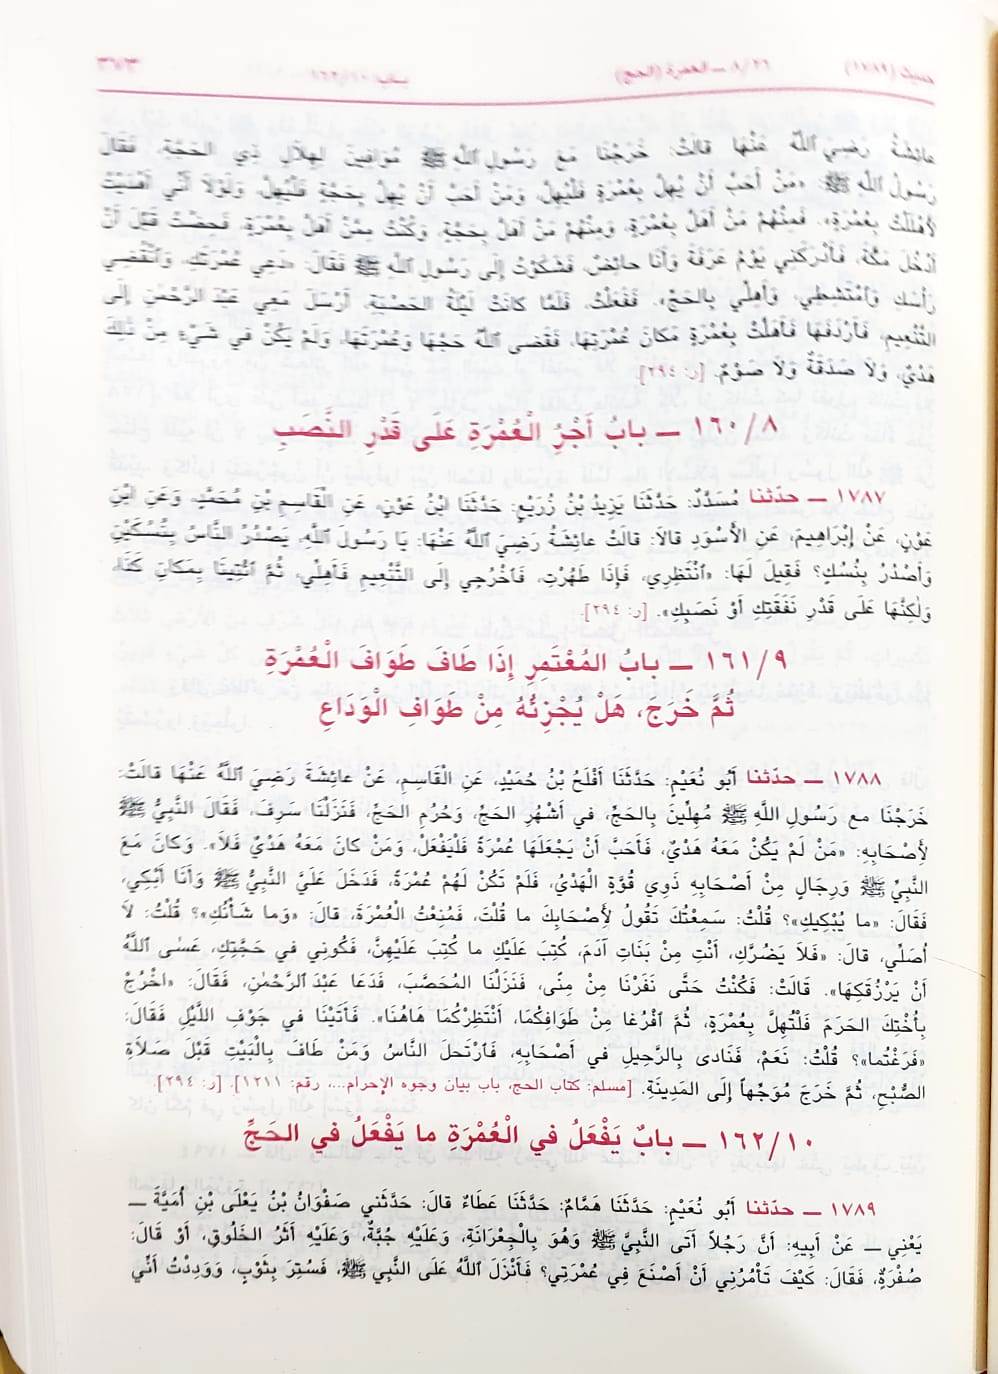 حديث (١٧٨٩) ٨/٢٦ ــ العمرة (الحج) بـاب ١٦٢/١٠ ٣٧٣
عائِشَةُ رَضِيَ ٱللَّهُ عَنْهَا قالَتْ: خَرَجْنَا مَعَ رَسُولِ ٱللهِ ﷺ مُوَافِينَ لِهِلَالِ ذِي الحَجَّةِ، فَقَالَ
رَسُولُ ٱللهِ ﷺ: «مَنْ أَحَبَّ أَنْ يُهِلَّ بِعُمْرَةٍ فَلْيُهِلَّ، وَمَنْ أَحَبَّ أَنْ يُهِلَّ بِحَجَّةٍ فَلْيُهِلَّ، وَلَوْلَا أَنِّي أَهْدَيْتُ
لَأَهْلَلْتُ بِعُمْرَةٍ». فَمِنْهُمْ مَنْ أَهَلَّ بِعُمْرَةٍ، وَمِنْهُمْ مَنْ أَهَلَّ بِحَجَّةٍ، وَكُنْتُ مِمَّنْ أَهَلَّ بِعُمْرَةٍ، فَحِضْتُ قَبْلَ أَنْ
أَدْخُلَ مَكَّةَ، فَأَدْرَكَنِي يَوْمُ عَرَفَةَ وَأَنَا حائِضٌ، فَشَكَوْتُ إِلَى رَسُولِ ٱللهِ ﷺ فَقَالَ: «دَعِي عُمْرَتَكِ، وَٱنْقُضِي
رَأْسَكِ وَٱمْتَشِطِي، وَأَهِلِّي بِالحَجِّ». فَفَعَلْتُ، فَلَمَّا كانَتْ لَيْلَةُ الحَصْبَةِ، أَرْسَلَ مَعِي عَبْدَ الرَّحْمٰنِ إِلَى
التَّنْعِيمِ، فَأَرْدَفَهَا فَأَهَلَّتْ بِعُمْرَةٍ مَكانَ عُمْرَتِهَا، فَقَضَى ٱللَّهُ حَجَّهَا وَعُمْرَتَهَا، وَلَمْ يَكُنْ في شَيْءٍ مِنْ ذٰلِكَ
هَدْيٌ، وَلَا صَدَقَةٌ وَلَا صَوْمٌ. [ر: ٢٩٤].
١٦٠/٨ ــ بابُ أَجْرِ الْعُمْرَةِ عَلَى قَدْرِ النَّصَبِ
١٧٨٧ ــ حدّثنا مُسَدَّدٌ: حَدَّثَنَا يَزِيدُ بْنُ زُرَيْعٍ: حَدَّثَنَا ابْنُ عَوْنٍ، عَنِ القَاسِمِ بْنِ مُحَمَّدٍ، وَعَنِ ابْنِ
عَوْنٍ، عَنْ إِبْرَاهِيمَ، عَنِ الأَسْوَدِ قالَا: قالَتْ عائِشَةُ رَضِيَ ٱللَّهُ عَنْهَا: يَا رَسُولَ ٱللَّهِ، يَصْدُرُ النَّاسُ بِنُسُكَيْنِ
وَأَصْدُرُ بِنُسُكٍ؟ فَقِيلَ لَهَا: «ٱنْتَظِرِي، فَإِذَا طَهُرْتِ، فَٱخْرُجِي إِلَى التَّنْعِيمِ فَأَهِلِّي، ثُمَّ ٱئْتِينَا بِمَكانِ كَذَا،
وَلٰكِنَّهَا عَلَى قَدْرِ نَفَقَتِكِ أَوْ نَصَبِكِ». [ر: ٢٩٤].
١٦١/٩ ــ بابُ المُعْتَمِرِ إِذَا طَافَ طَوَافَ الْعُمْرَةِ
ثُمَّ خَرَجَ، هَلْ يُجْزِئُهُ مِنْ طَوَافِ الْوَدَاعِ
١٧٨٨ ــ حدّثنا أَبُو نُعَيْمٍ: حَدَّثَنَا أَفْلَحُ بْنُ حُمَيْدٍ، عَنِ الْقَاسِمِ، عَنْ عائِشَةَ رَضِيَ ٱللَّهُ عَنْهَا قالَتْ:
خَرَجْنَا مع رَسُولِ ٱللَّهِ ﷺ مُهِلِّينَ بِالحَجِّ، في أَشْهُرِ الحَجِّ، وَحُرُمِ الحَجِّ، فَنَزَلْنَا سَرِفَ، فَقَالَ النَّبِيُّ ﷺ
لِأَصْحَابِهِ: «مَنْ لَمْ يَكُنْ مَعَهُ هَدْيٌ، فَأَحَبَّ أَنْ يَجْعَلَهَا عُمْرَةً فَلْيَفْعَلْ، وَمَنْ كانَ مَعَهُ هَدْيٌ فَلَا». وَكانَ مَعَ
النَّبِيِّ ﷺ وَرِجَالٍ مِنْ أَصْحَابِهِ ذَوِي قُوَّةٍ الْهَدْيُ، فَلَمْ تَكُنْ لَهُمْ عُمْرَةً، فَدَخَلَ عَلَيَّ النَّبِيُّ ﷺ وَأَنَا أَبْكِي،
فَقَالَ: «ما يُبْكِيكِ»؟ قُلْتُ: سَمِعْتُكَ تَقُولُ لِأَصْحَابِكَ ما قُلْتَ، فَمُنِعْتُ الْعُمْرَةَ، قالَ: «وَما شَأْنُكِ»؟ قُلْتُ: لَا
أُصَلِّي، قالَ: «فَلَا يَضُرَّكِ، أَنْتِ مِنْ بَنَاتِ آدَمَ، كُتِبَ عَلَيْكِ ما كُتِبَ عَلَيْهِنَّ، فَكُونِي في حَجَّتِكِ، عَسٰى ٱللَّهُ
أَنْ يَرْزُقَكِهَا». قالَتْ: فَكُنْتُ حَتَّى نَفَرْنَا مِنْ مِنًى، فَنَزَلْنَا المُحَصَّبَ، فَدَعَا عَبْدَ الرَّحْمٰنِ، فَقَالَ: «اخْرُجْ
بِأُخْتِكَ الحَرَمَ فَلْتُهِلَّ بِعُمْرَةٍ، ثُمَّ ٱفْرُغَا مِنْ طَوَافِكُمَا، أَنْتَظِرْكُمَا هَاهُنَا». فَأَتَيْنَا في جَوْفِ اللَّيْلِ فَقَالَ:
«فَرَغْتُما»؟ قُلْتُ: نَعَمْ، فَنَادَى بِالرَّحِيلِ في أَصْحَابِهِ، فَٱرْتَحَلَ النَّاسُ وَمَنْ طَافَ بِالْبَيْتِ قَبْلَ صَلَاةِ
الصُّبْحِ، ثُمَّ خَرَجَ مُوَجِّهاً إِلَى المَدِينَةِ. [مسلم: كتاب الحج، باب بيان وجوه الإحرام...، رقم: ١٢١١]. [ر: ٢٩٤].
١٦٢/١٠ ــ بابٌ يَفْعَلُ في الْعُمْرَةِ ما يَفْعَلُ في الحَجِّ
١٧٨٩ ــ حدّثنا أَبُو نُعَيْمٍ: حَدَّثَنَا هَمَّامٌ: حَدَّثَنَا عَطَاءٌ قالَ: حَدَّثَنِي صَفْوَانُ بْنُ يَعْلَى بْنِ أُمَيَّةَ ــ
يَعْنِي ــ عَنْ أَبِيهِ: أَنَّ رَجُلاً أَتَى النَّبِيَّ ﷺ وَهُوَ بِالْجِعْرَانَةِ، وَعَلَيْهِ جُبَّةٌ، وَعَلَيْهِ أَثَرُ الخَلُوقِ، أَوْ قالَ:
صُفْرَةٌ، فَقَالَ: كَيْفَ تَأْمُرُنِي أَنْ أَصْنَعَ فِي عُمْرَتِي؟ فَأَنْزَلَ ٱللَّهُ عَلَى النَّبِيِّ ﷺ، فَسُتِرَ بِثَوْبٍ، وَوَدِدْتُ أَنِّي